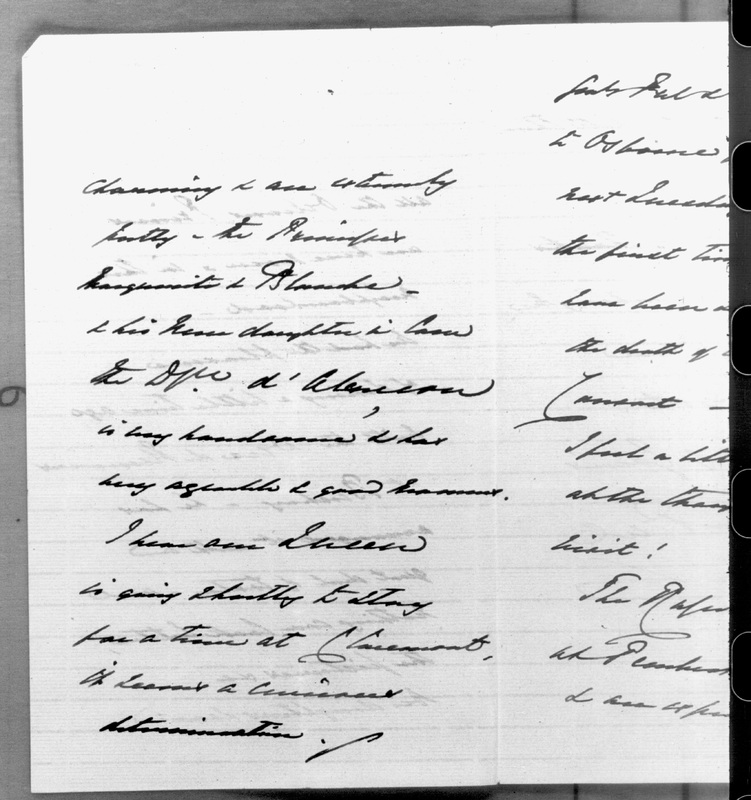 charming & are extremely
pretty – the Princess
Marguerite & Blanche –
& his new daughter in law
the Dsse d'Alencon
is very handsome & has
very agreeable & good manners.
I hear our Queen
is going shortly to stay
for a time at Claremont,
it seems a curious
determination.
to Osborne
next
the first tim
have been
the death of
Consort –
I feel a litt
at the thou
visit!
The
at
& are expe